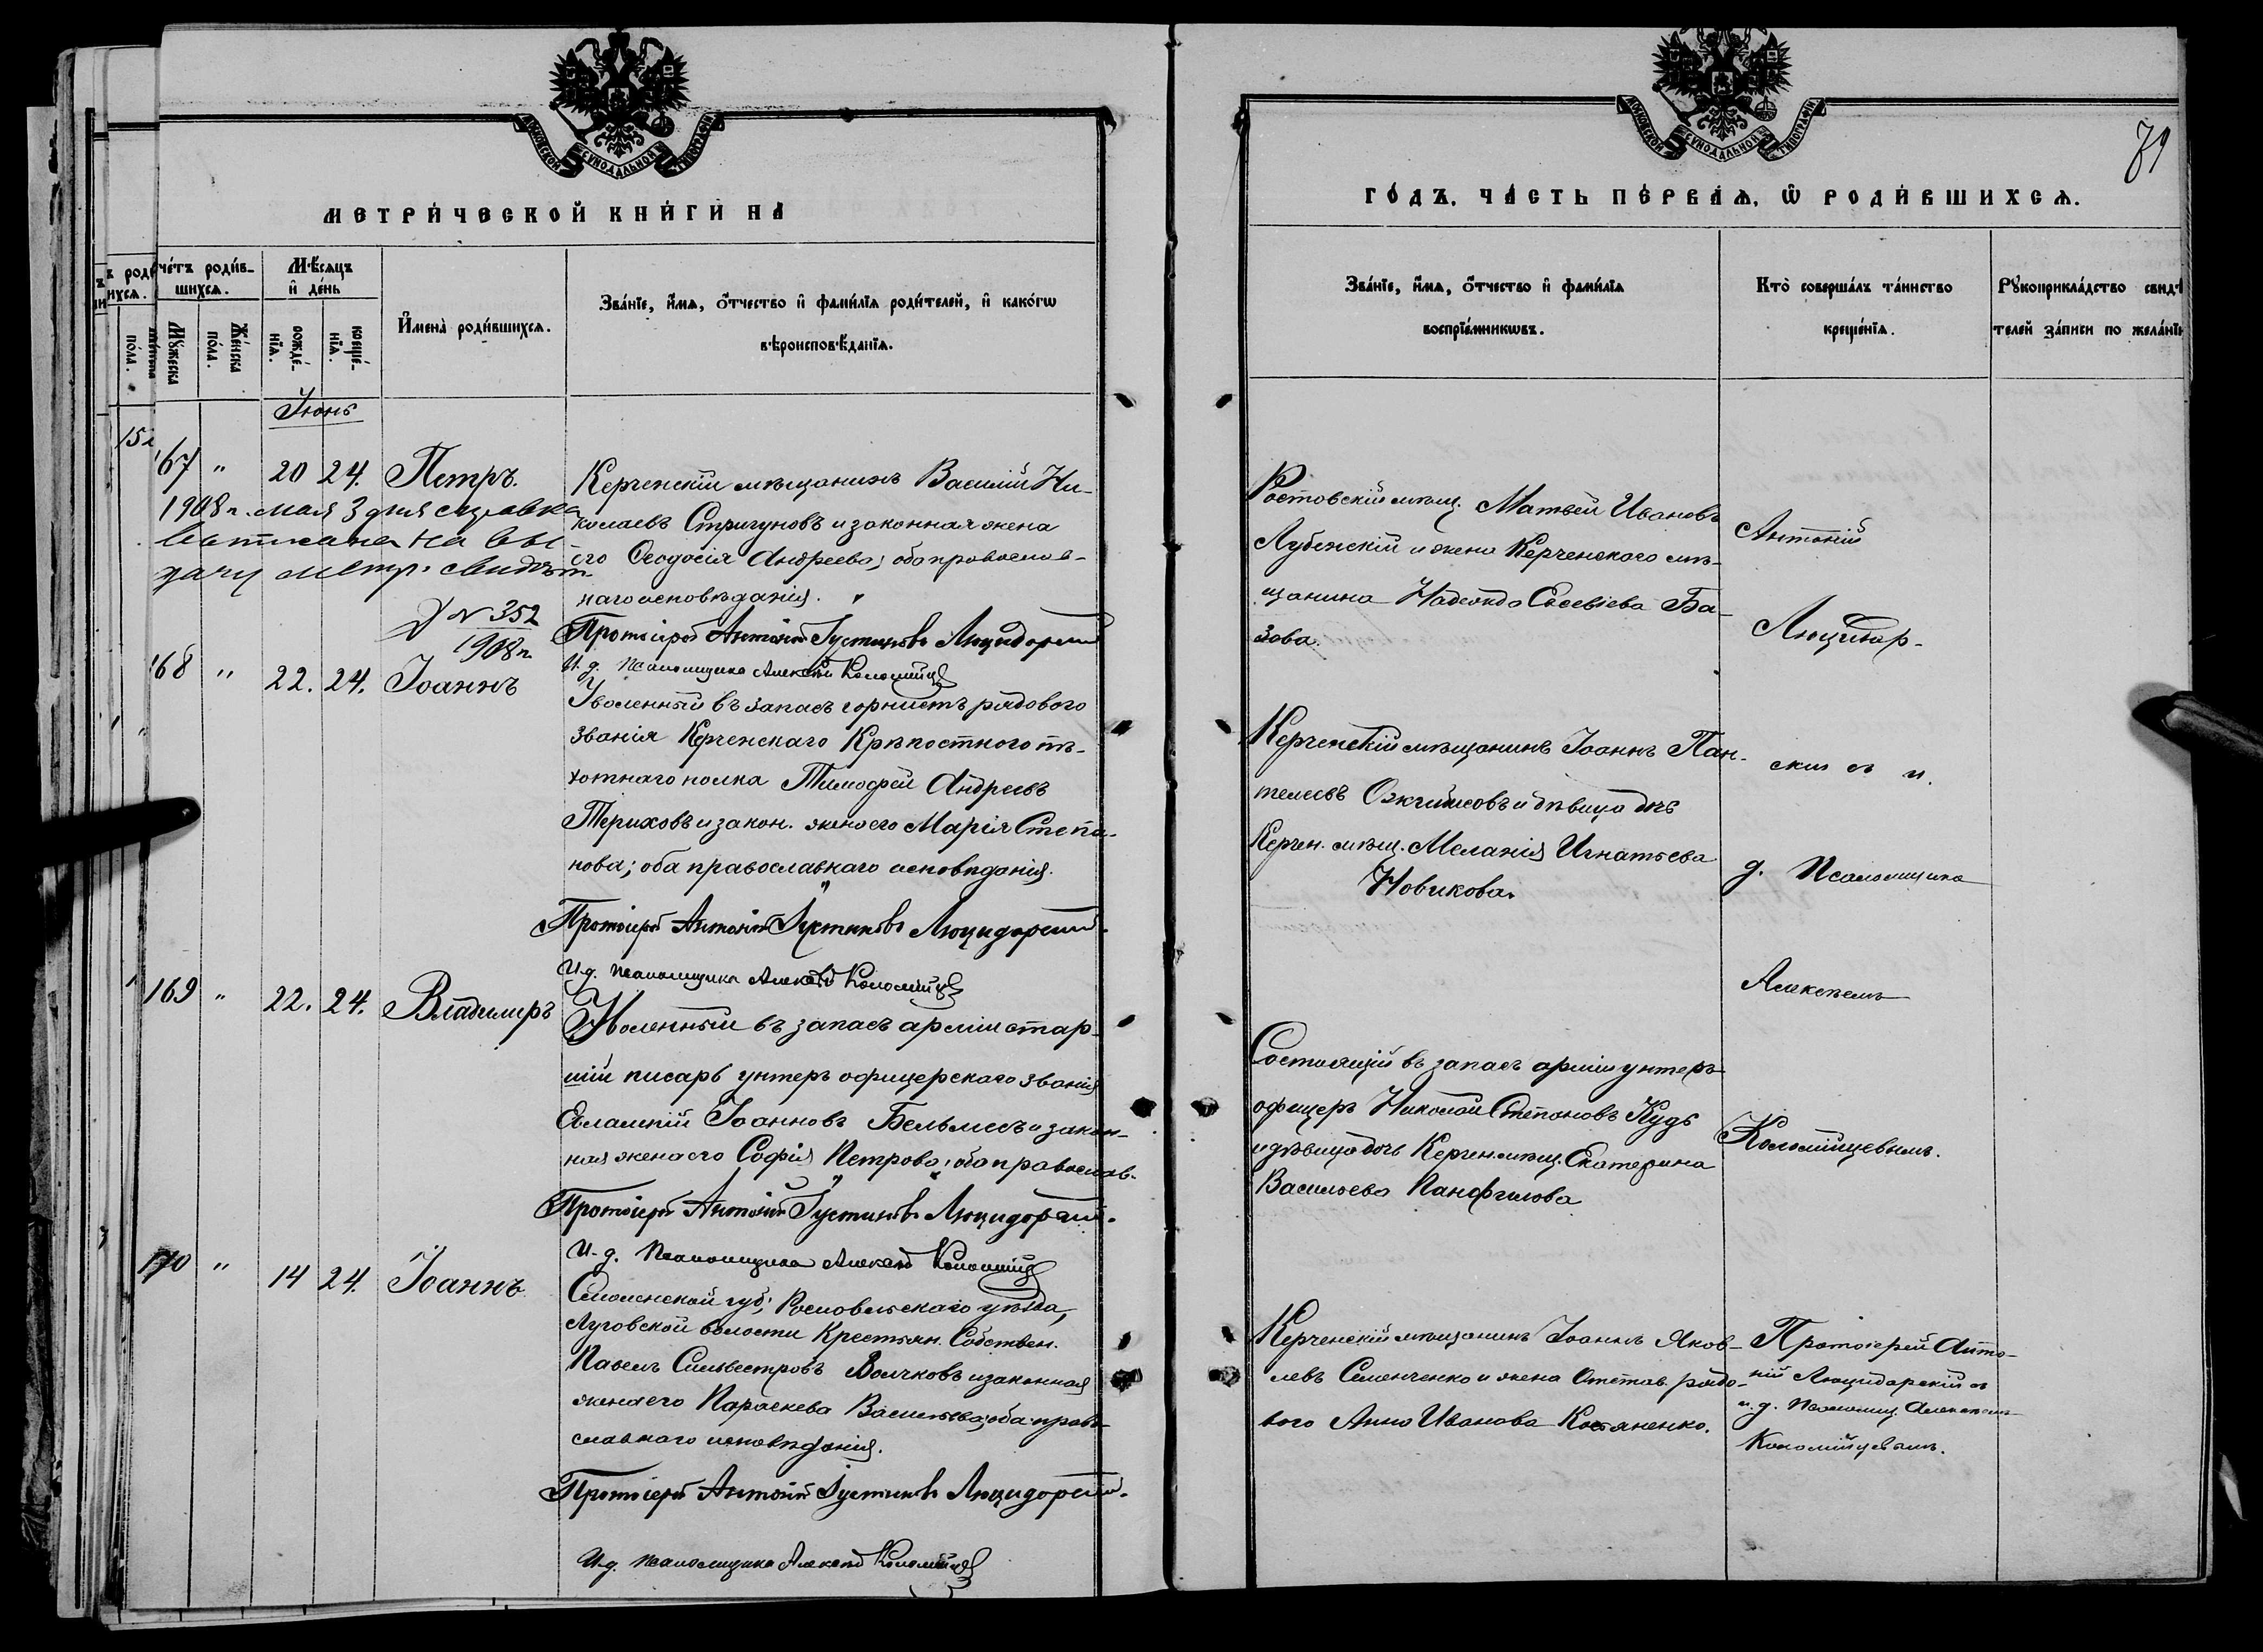 МОСКОВСКОЙ СѴНОДАЛЬНОЙ ТИПОГРАФІИ
МЕТРИ́ЧЕСКОЙ КНИ́ГИ НА
чéтъ роди́в-
шихсѧ.
Мꙋ́жеска
Жéнска
пóла.
Мѣ́сѧцъ
и҆ дéнь
рождé-
нїѧ.
крещé-
нїѧ.
И҆менà роди́вшихсѧ.
Звáнїе, и҆́мѧ, ѻ҆́тчество и҆ фами́лїѧ роди́телей, и҆ какóгѡ
вѣроисповѣ́данїѧ.
Іюнь
167 " 20 24. Петръ.
Керченскій мѣщанинъ Василій Ни-
колаевъ Стригуновъ и законная жена
его Ѳеодосія Андреева; оба православ-
наго исповѣданія.
1908 г. мая 3 дня справка
выписана на вы
дачу метр. свидѣт.
№ 352
1908 г.
Протоіерей Антоній Іустиновъ Люцидарскій
И. д. псаломщика Алексѣй Коломійцевъ
168 " 22. 24. Іоаннъ
Уволенный въ запасъ горнистъ рядового
званія Керченскаго Крѣпостного пѣ-
хотнаго полка Тимофей Андреевъ
Териховъ и закон. жена его Марія Степа-
нова; оба православнаго исповѣданія.
Протоіерей Антоній Іустиновъ Люцидарскій.
И. д. псаломщика Алексѣй Коломійцевъ
169 " 22. 24. Владимиръ
Уволенный въ запасъ арміи стар-
шій писарь унтеръ офицерскаго званія
Евлампій Іоанновъ Бельмесъ и закон-
ная жена его Софія Петрова; оба православ.
Протоіерей Антоній Іустиновъ Люцидарскій.
И. д. Псаломщика Алексѣй Коломійцевъ
170 " 14 24. Іоаннъ
Смоленской губ; Рославльскаго уѣзда,
Луговской волости Крестьян. Собствен.
Павелъ Сильвестровъ Волчковъ и законная
жена его Параскева Васильева; оба право-
славнаго исповѣданія.
Протоіерей Антоній Іустиновъ Люцидарскій.
И. д. псаломщика Алексѣй Коломійцевъ
МОСКОВСКОЙ СѴНОДАЛЬНОЙ ТИПОГРАФІИ
79
ГО́ДЪ. ЧА́СТЬ ПЕ́РВАѦ, Ѡ҆ РОДИ́ВШИХСѦ.
Звáнїе, и҆́мѧ, ѻ҆́тчество и҆ фами́лїѧ
воспрїéмникѡвъ.
Ктò совершáлъ тáинство
крещéнїѧ.
Рꙋкоприклáдство свидѣ́
телей зáписи по желáнїю
Ростовскій мѣщ. Матвей Ивановъ
Лубенскій и жена Керченскаго мѣ-
щанина Надежда Евсевіева Ба-
зова.
Антоній
Люцидар-
Керченскій мѣщанинъ Іоаннъ Пан-
телеевъ и дѣвица дочь
Керчен. мѣщ. Меланія Игнатьева
Новикова.
скій съ и.
д. Псаломщика
Алексѣемъ
Состоящій въ запасѣ арміи унтеръ
офицеръ Николай Степановъ Кудь
и дѣвица дочь Керчен. мѣщ. Екатерина
Васильева Панфилова
Коломійцевымъ.
Керченскій мѣщанинъ Іоаннъ Яков-
левъ Семенченко и жена Отстав. рядо-
вого Анна Иванова Костяненко.
Протоіерей Анто-
ній Люцидарскій съ
и. д. псаломщ. Алексѣемъ
Коломійцевымъ.